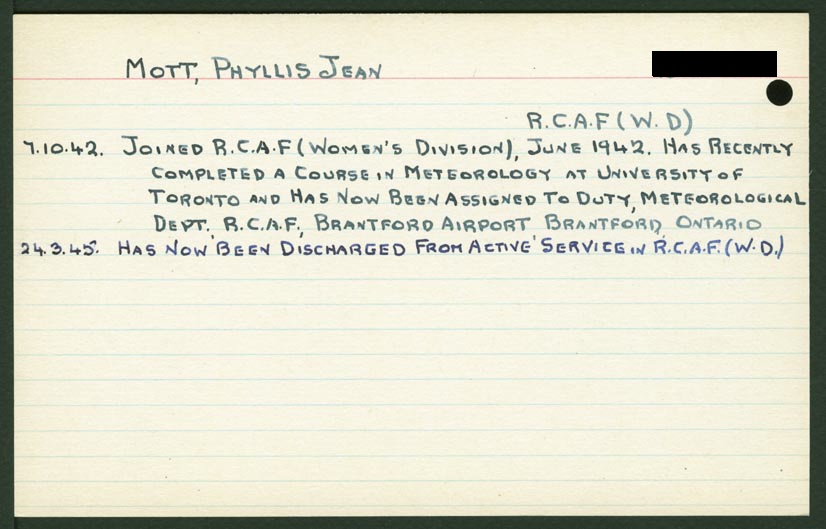 MOTT, PHYLLIS JEAN
R.C.A.F (W.D)
7.10.42. JOINED R.C.A.F (WOMEN'S DIVISION), JUNE 1942. HAS RECENTLY
COMPLETED A COURSE IN METEOROLOGY AT UNIVERSITY OF
TORONTO AND HAS NOW BEEN ASSIGNED TO DUTY, METEOROLOGICAL
DEPT., R.C.A.F., BRANTFORD AIRPORT BRANTFORD, ONTARIO
24.3.45. HAS NOW BEEN DISCHARGED FROM ACTIVE SERVICE IN R.C.A.F. (W.D.)